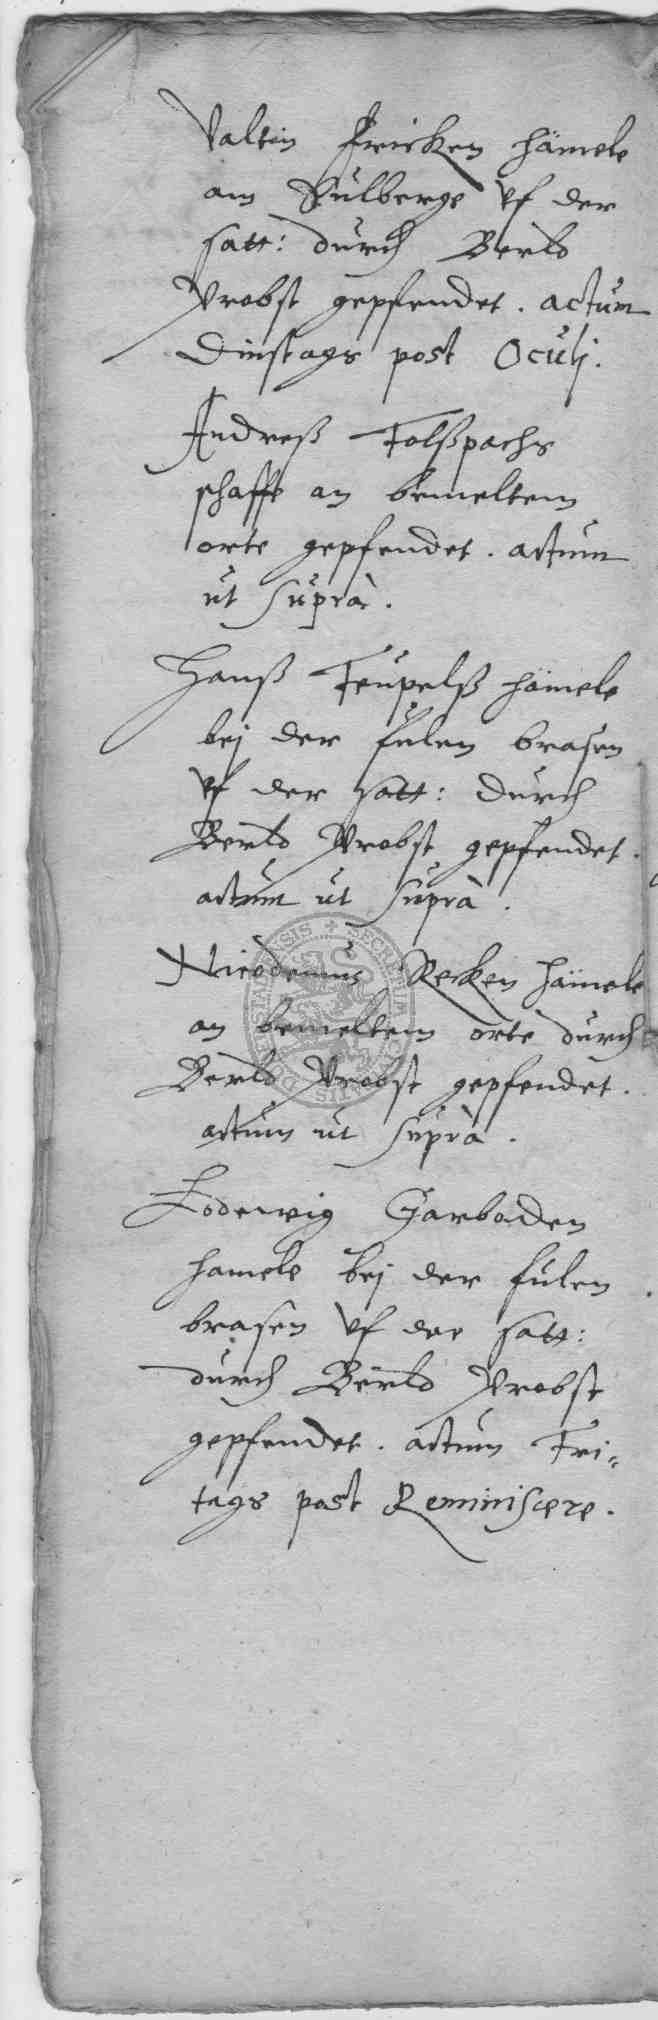 Valtin Fricken hämele
am Külberge vf der
satt: durch Berld
Probst gepfendet. actum
Dinstags post Oculj.
Andreß Folßpachs
schaffe an bemeltem
orte gepfendet. actum
ut suprà.
Hanß Teupelß hämele
bej der fulen brasen
vf der satt: durch
Berld Probst gepfendet.
actum ut suprà.
Nicodemus Recken hämele
an bemeltem orte durch
Berld Probst gepfendet.
actum ut suprà.
Lodewig Garboden
hamele bej der fulen
brasen vf der satt:
durch Berld Probst
gepfendet. actum Fri-
tags post Reminiscere.